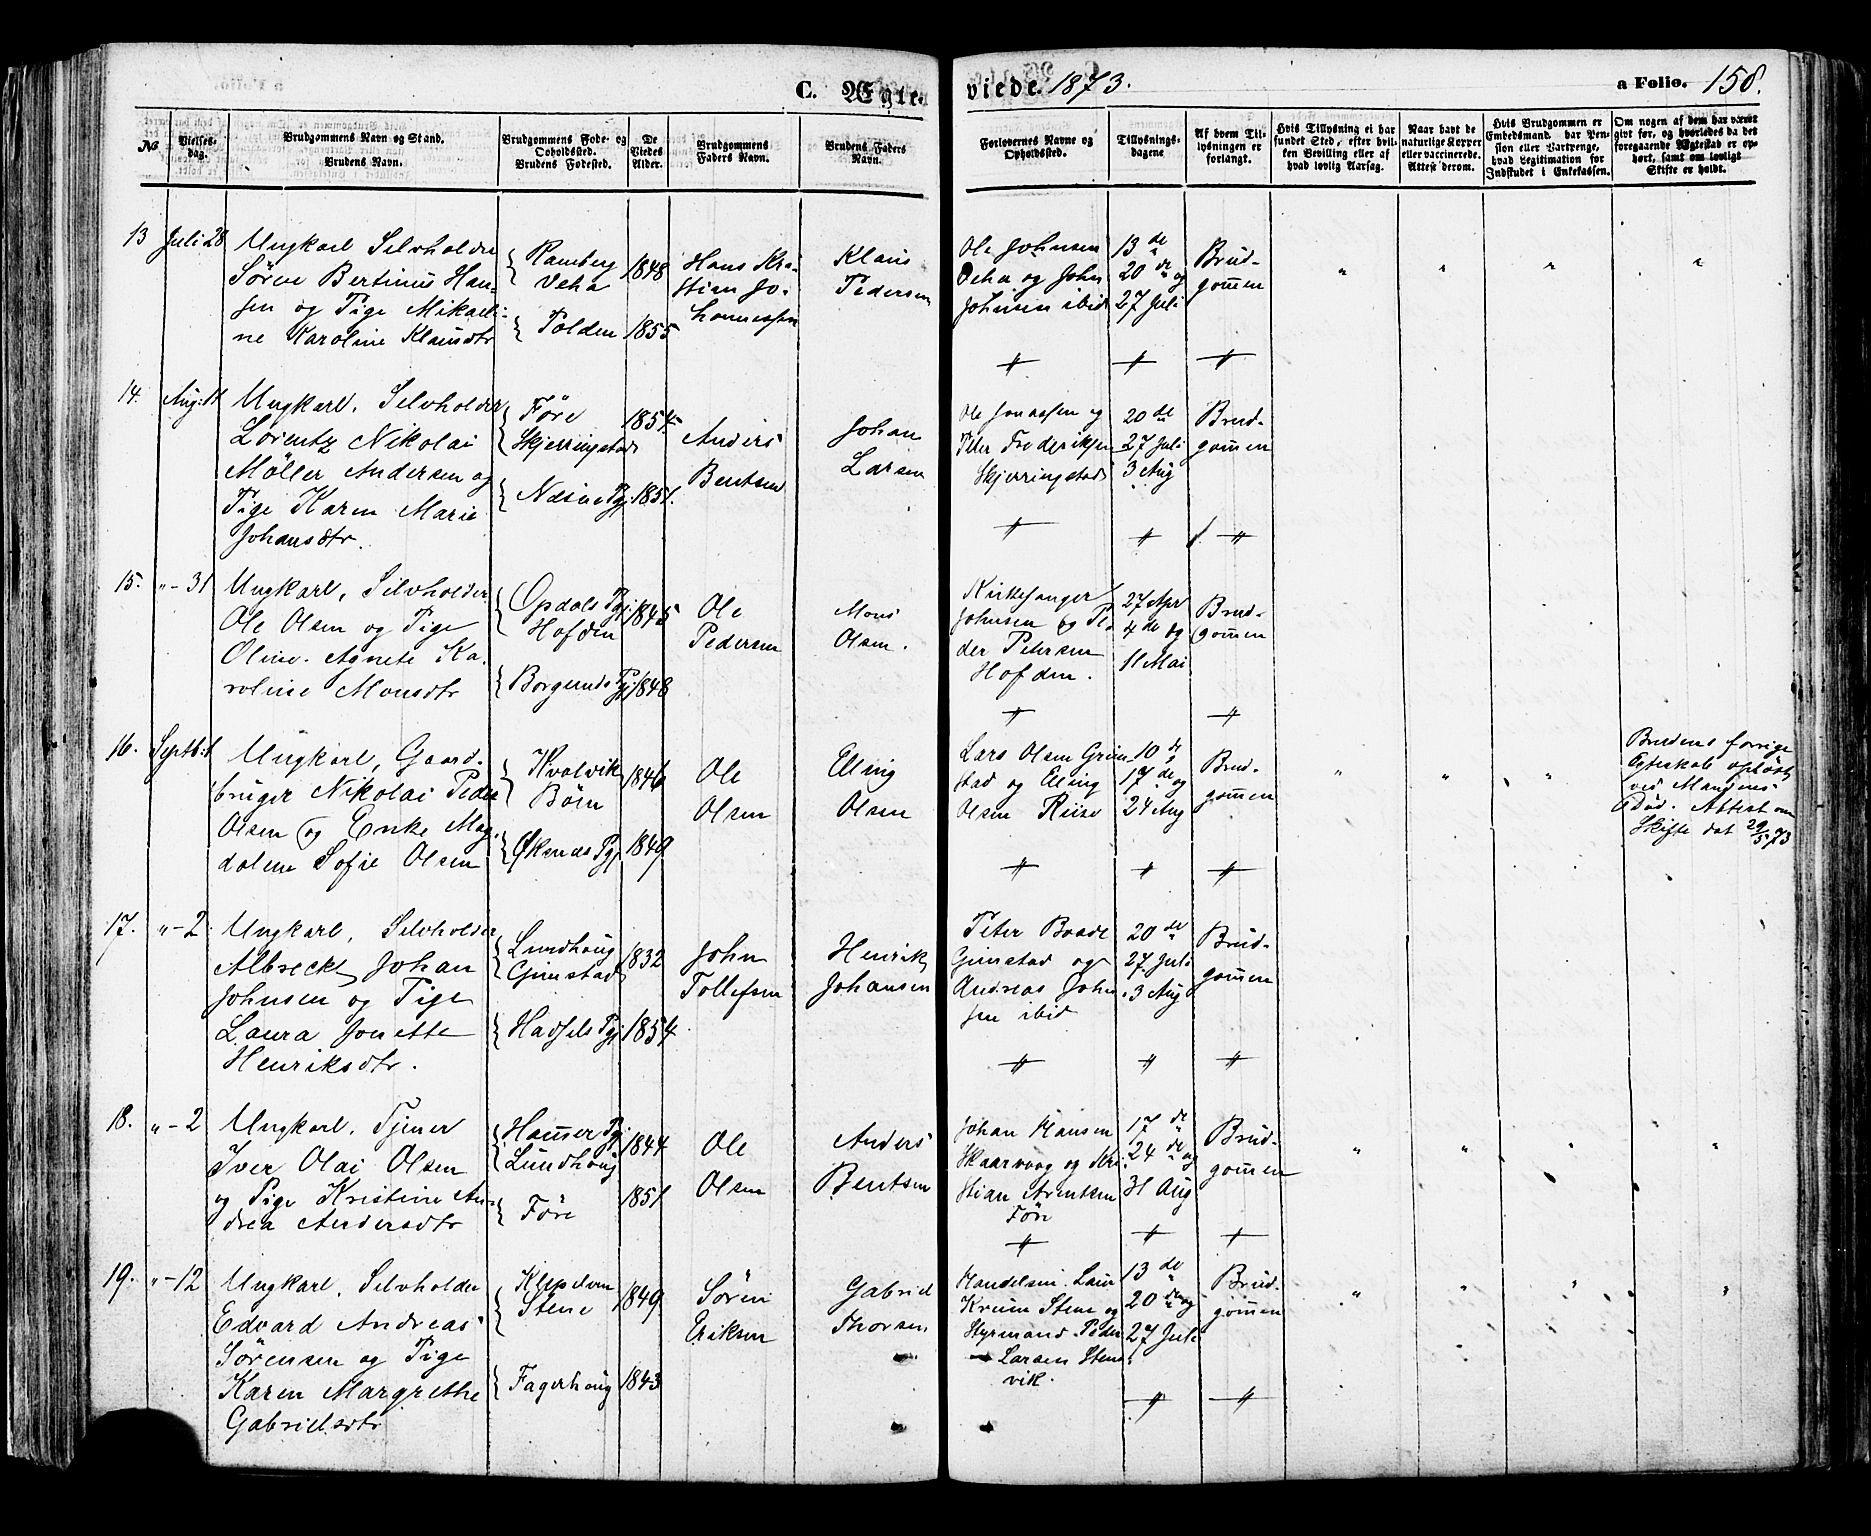 C. Ægte-
viede. 1873.
a Folio. 158.
No
Vielses-
dag.
Brudgommens Navn og Stand.
Brudens Navn.
Brudgommens Føde- og
Opholdssted.
Brudens Fødested.
De
Viedes
Alder.
Brudgommens
Faders Navn.
Brudens Faders
Navn.
Forlovernes Navne og
Opholdssted.
Tillysnings-
dagene
Af hvem Til-
lysningen er
forlangt.
Hvis Tillysning ei har
fundet Sted, efter hvil-
ken Bevilling eller af
hvad lovlig Aarsag.
Naar havt de
naturlige Kopper
eller vaccinerede.
Attest derom.
Hvis Brudgommen er
Embedsmand, har Pen-
sion eller Vartpenge,
hvad Legitimation for
Indskudet i Enkekassen.
Om nogen af dem har været
gift før, og hvorledes da det
foregaaende Ægteskab er op-
hørt, samt om lovligt
Skifte er holdt.
13 Juli 28
Ungkarl Selvholder
Sören Bertinius Han-
sen og Pige Mikaeli-
ne Karoline Klausdtr
Ramberg
Veha
Tolden
1848
1855
Hans Kri-
stian Jo-
hannessen
Klaus
Pedersen
Ole Johnsen
Veha og John
Johnsen ibid
13de
20de og
27 Juli
Brud-
gommen
14. Aug: 11
Ungkarl, Selvholder
Lorentz Nikolai
Möller Andersen og
Pige Karen Marie
Johansdtr.
Före
Skjerringstad
Næsne Pgj.
1854
1851.
Anders
Bentsen
Johan
Larsen
Ole Jonassen og
Peter Frederiksen
Skjerringstad
20de
27 Juli
3 Aug
Brud-
gommen
15. "-31
Ungkarl, Selvholder
Ole Olsen og Pige
Oline Agnete Ka-
roline Monsdtr
Opdals Pgj.
Hofden
Borgunds Pgj.
1845
1848
Ole
Pedersen
Mons
Olsen.
Kirkesanger
Johnsen og Pe-
der Petersen
Hofden.
27 Apr
4de og
11 Mai
Brud-
gommen
16. Septb: 1
Ungkarl, Gaard-
bruger Nikolai Peder
Olsen og Enke Mag-
dalene Sofie Olsen
Kvalvik
Börn
Öksnes Pgj.
1846
1849
Ole
Olsen
Elling
Olsen
Lars Olsen Grim-
stad og Elling
Olsen Riise
10de
17de og
24 Aug
Brud-
gommen
Brudens forrige
Egteskab oplöst
ved Mandens
Död. Attest om
Skifte dat 29/5 73
17. "-2
Ungkarl, Selvholder
Albreckt Johan
Johnsen og Pige
Laura Jonette
Henriksdtr.
Lundhaug
Gimstad
Hadsels Pgj.
1832
1854
John
Tollefsen
Henrik
Johansen
Peter Baade
Gimstad og
Andreas John-
sen ibid
20de
27 Juli
3 Aug
Brud-
gommen
18. "-2
Ungkarl, Tjener
Iver Olai Olsen
og Pige Kristine An-
drea Andersdtr
Hammer Pgj.
Lundhoug
Före
1844
1851
Ole
Olsen
Anders
Bentsen
Johan Hansen
Skaarvaag og Kri-
stian Arentsen
Före
17de
24de og
31 Aug
Brud-
gommen
19. "-12
Ungkarl, Selvholder
Edvard Andreas
Sörensen og Pige
Karen Margrethe
Gabrielsdtr
Stene
Fagerhoug
1849
1843
Sören
Eriksen
Gabriel
Thorsen
Handelsm. Laur.
Krum Stene og
Styrmand Peder
Larsen Stens-
vik.
13de
20de og
27 Juli
Brud-
gommen